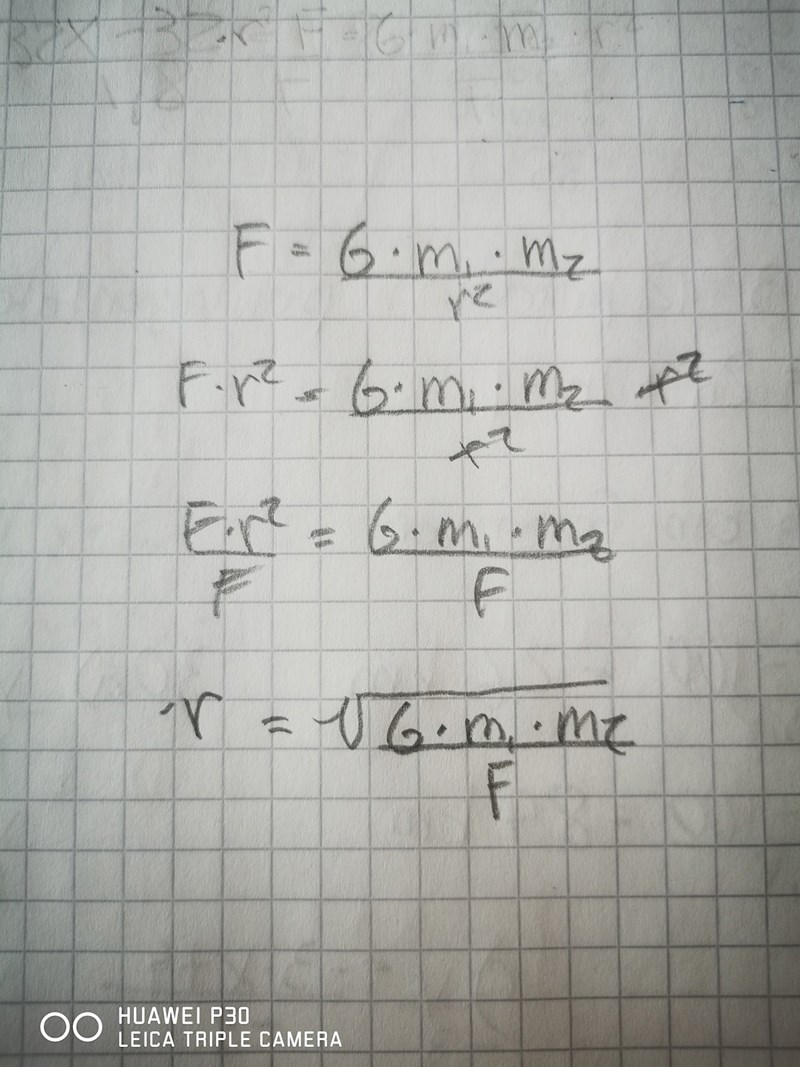 F = G · m₁ · m₂ / r²
F · r² = G · m₁ · m₂ / r² r²
F · r² / F = G · m₁ · m₂ / F
r = √(G · m₁ · m₂ / F)
HUAWEI P30
LEICA TRIPLE CAMERA